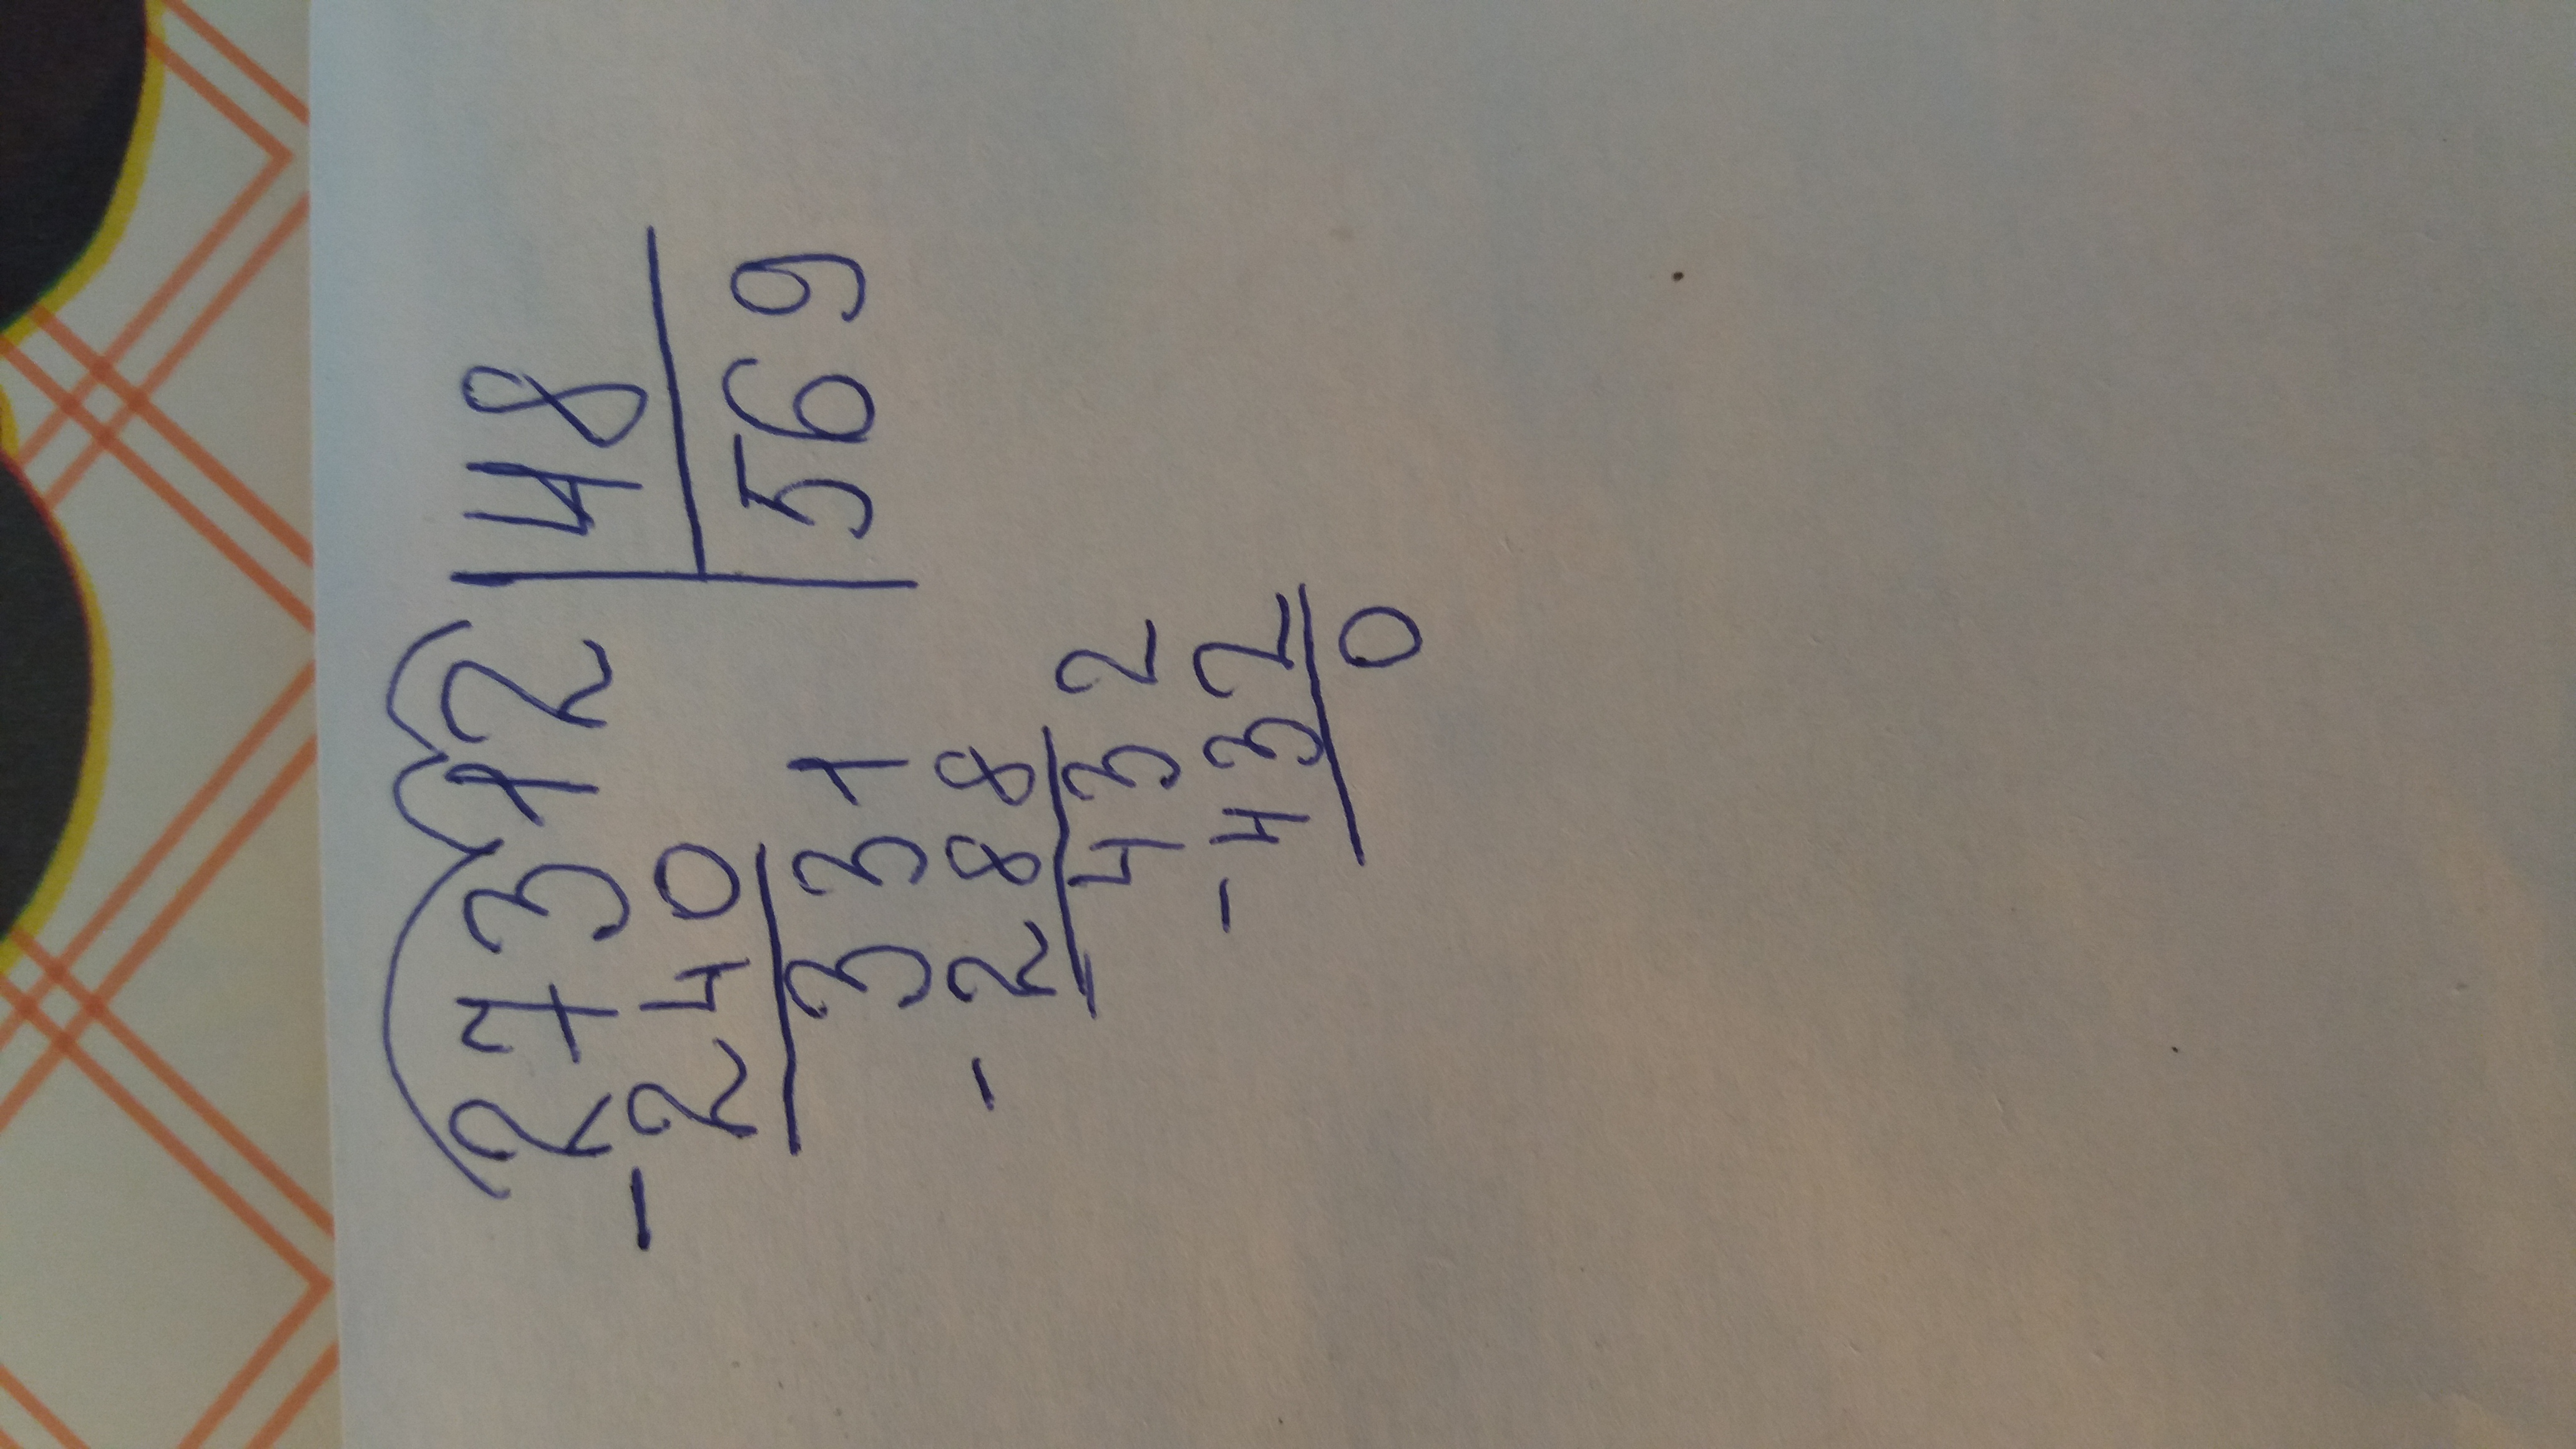 27312 | 48
- 240 | 569
331
- 288
432
- 432
0